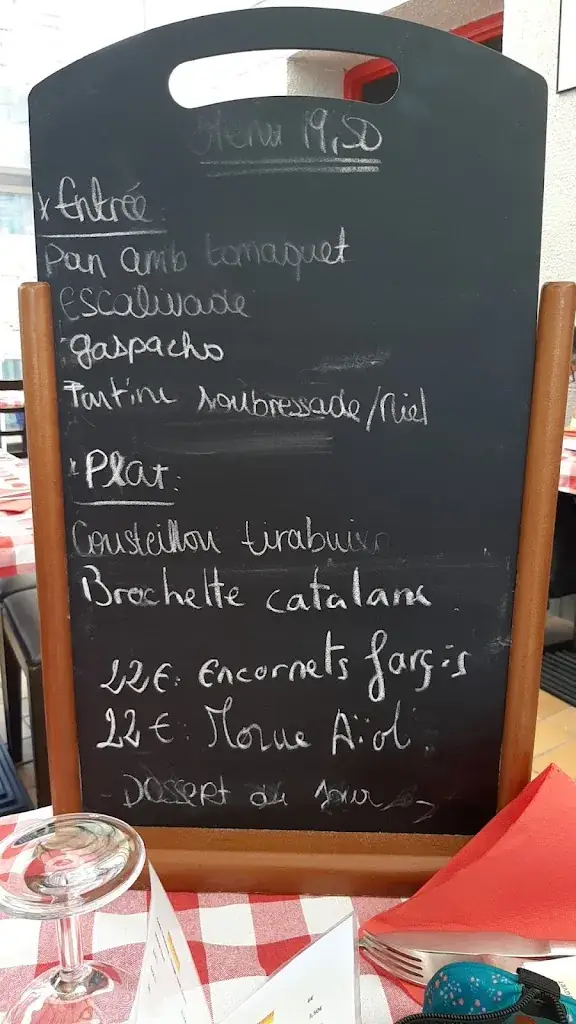 Menu 19,50
x Entrée:
Pan amb tomaquet
Escalivade
gaspacho
Tartine soubressade/Miel
Plat:
Cousteillou tirabuixo
Brochette catalane
22€: Encornets farçis
22€: Morue Aïoli
- Dessert du jour